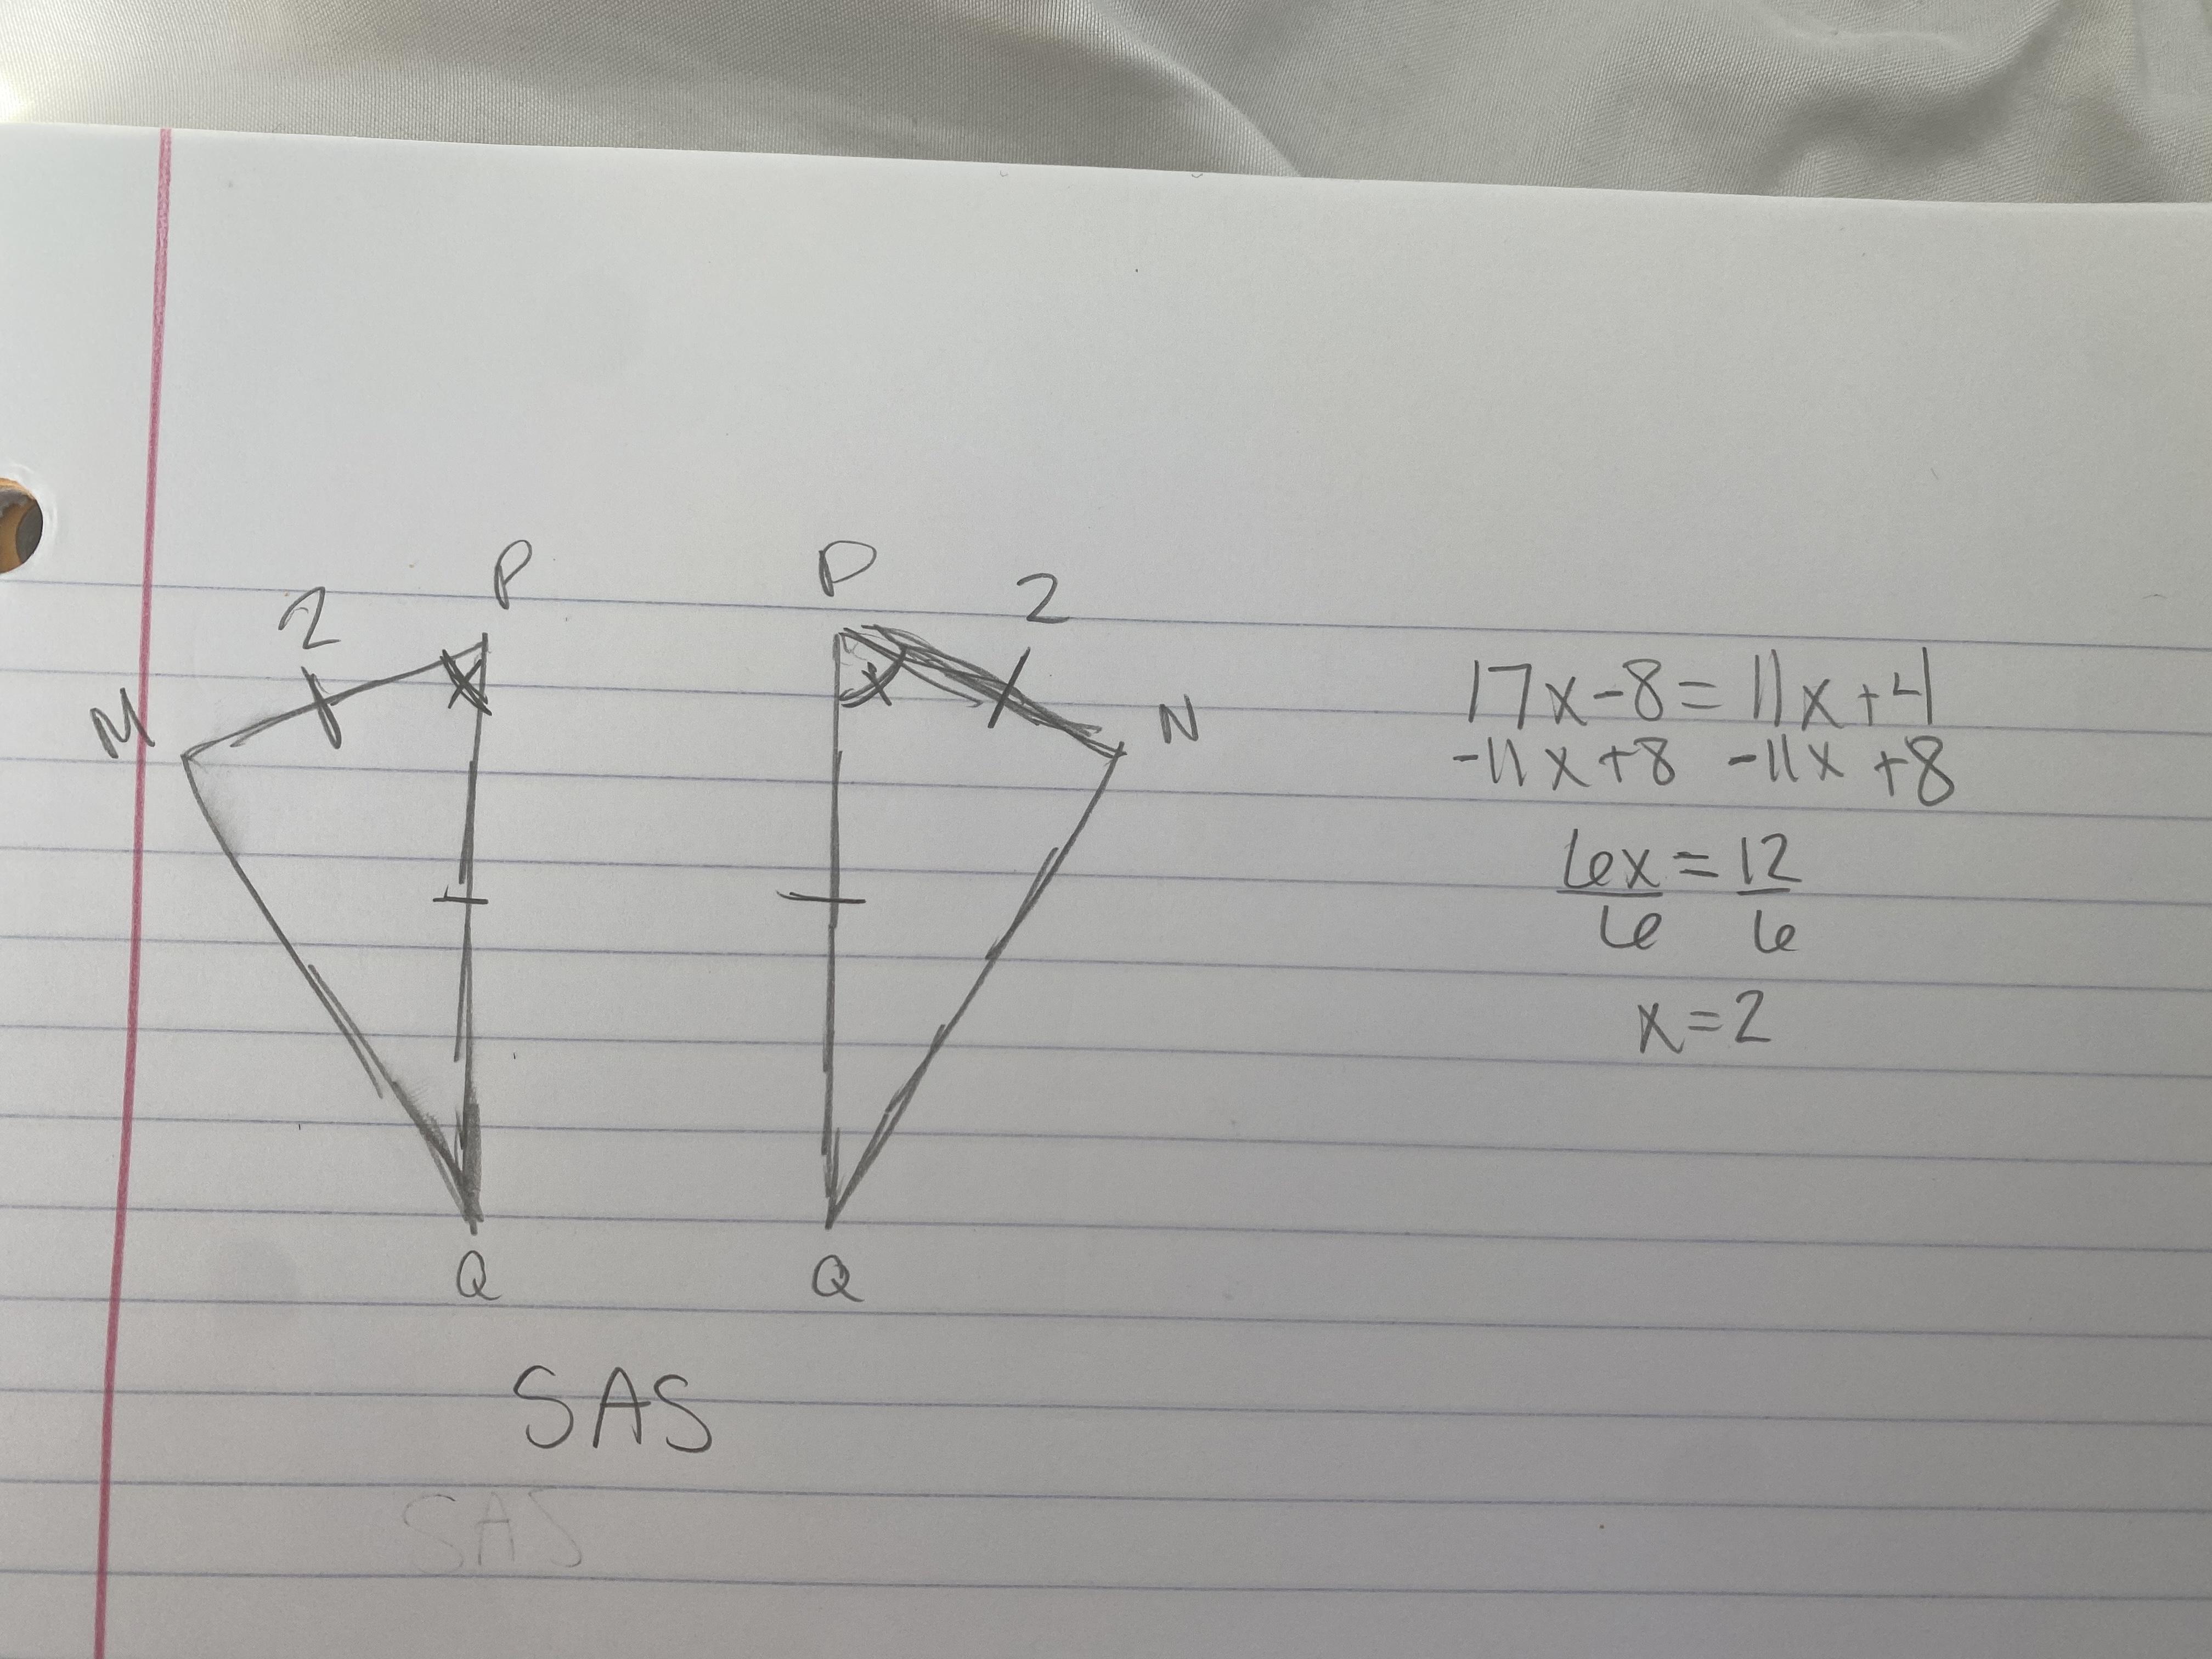 P P
2 2
M N
x x
Q Q
SAS
SAS
17x-8=11x+4
-11x+8 -11x+8
6x=12
6 6
x=2